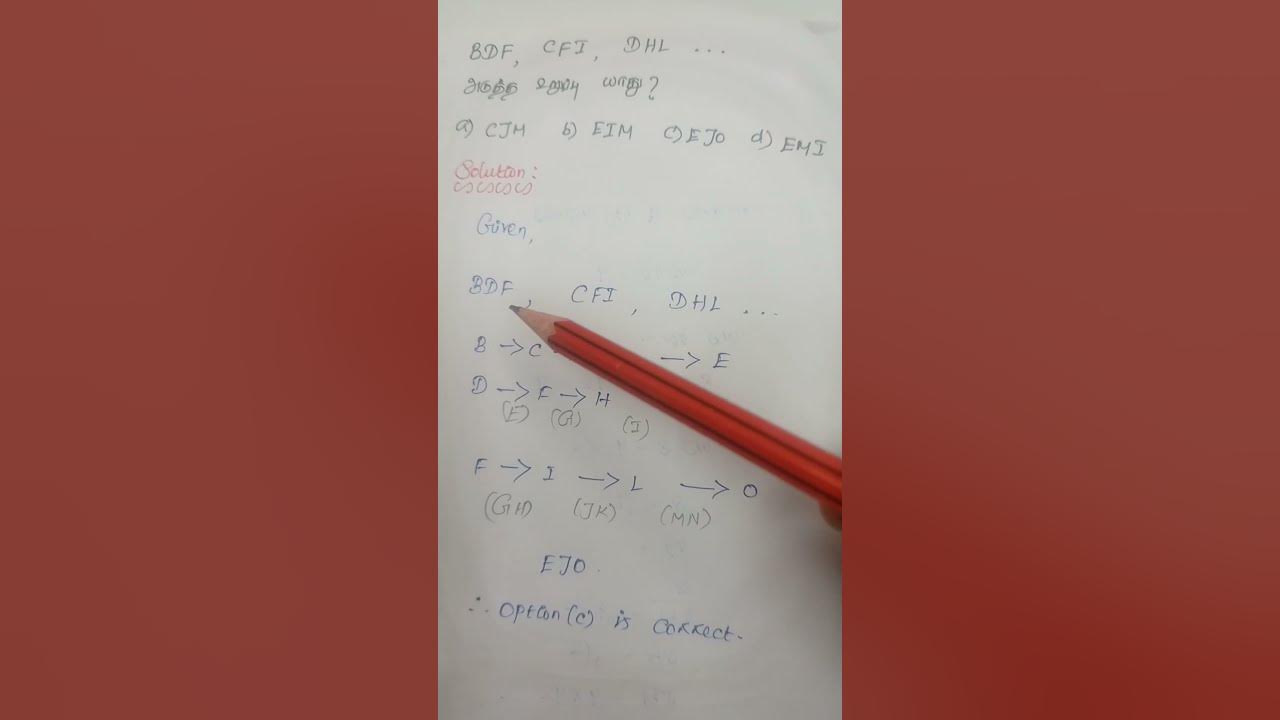 BDF, CFI, DHL ...
அடுத்த உறுப்பு யாது?
a) CJM b) EIM c) EJO d) EMI
Solution:
Given,
BDF, CFI, DHL ...
B → C → E
D → F → H
(E) (G) (I)
F → I → L → O
(GH) (JK) (MN)
EJO.
∴ Option (c) is correct.